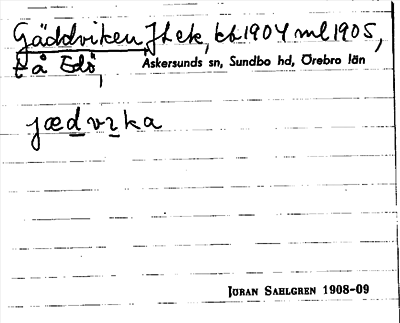 Gäddviken, J1 ek, kb 1904 ml 1905,
t å Edö,
Askersunds sn, Sundbo hd, Örebro län
jædvıka
JÖRAN SAHLGREN 1908-09